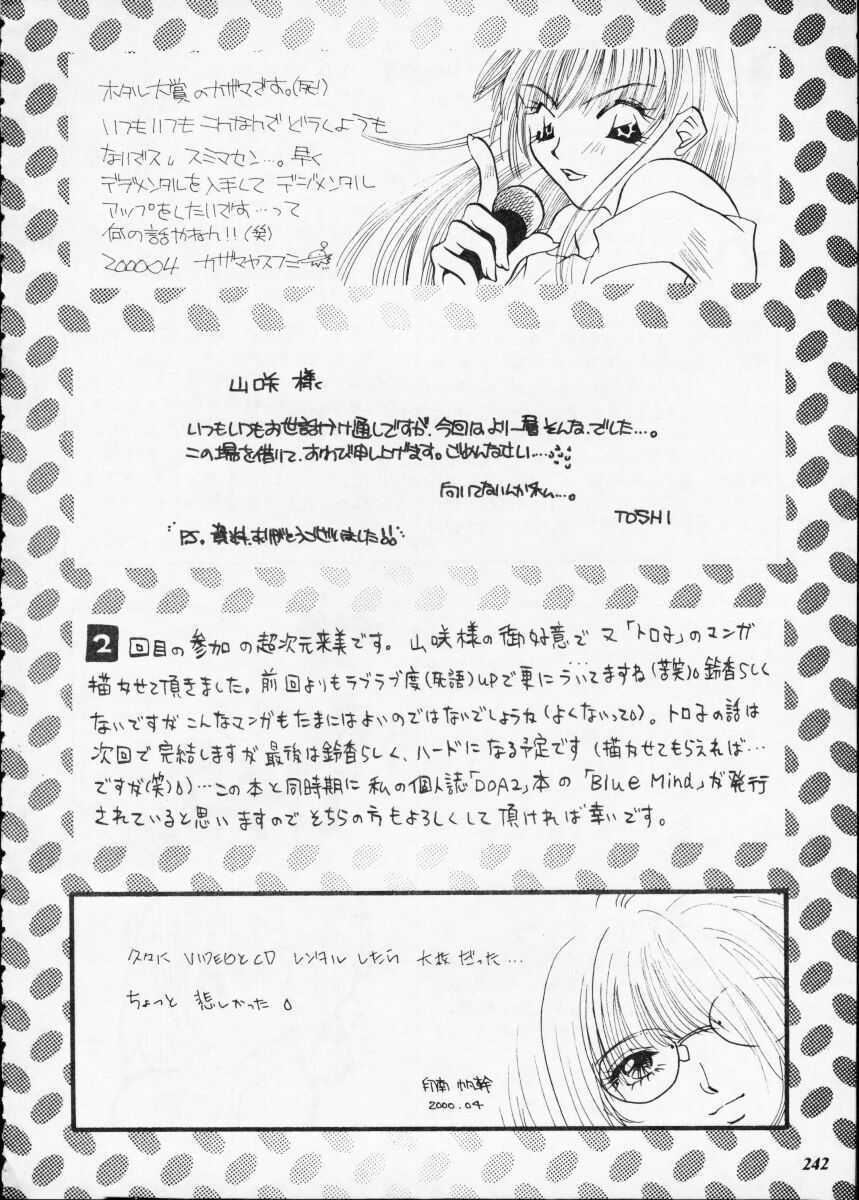 ホタル大賞のカザマです。(死)
いつもいつもこんなんでどうしようも
ないデス。スミマセン…。早く
デジメンタルを入手して デジメンタル
アップをしたいです…って
何の話やねん!!(笑)
2000 04 カザマヤスフミ
山咲 様
いつもいつもお世話かけ通しですが、今回はより一層そんな、でした…。
この場を借りて、おわび申し上げます。ごめんなさい…
向いてないんかなぁ…。
TOSHI
PS. 資料、ありがとうございました!!
2回目の参加の超次元来美です。山咲様の御好意で又「トロ子」のマンガ
描かせて頂きました。前回よりもラブラブ度(死語)UPで更にういてますね(苦笑)。鈴香らしく
ないですがこんなマンガもたまにはよいのではないでしょうね(よくないって)。トロ子の話は
次回で完結しますが最後は鈴香らしく、ハードになる予定です(描かせてもらえれば…
ですが(笑))…この本と同時期に私の個人誌「DOA2」本の「Blue Mind」が発行
されていると思いますのでそちらの方もよろしくして頂ければ幸いです。
久々に VIDEOとCD レンタルしたら 大変だった…
ちょっと 悲しかった
印南 帆幹
2000.04
242